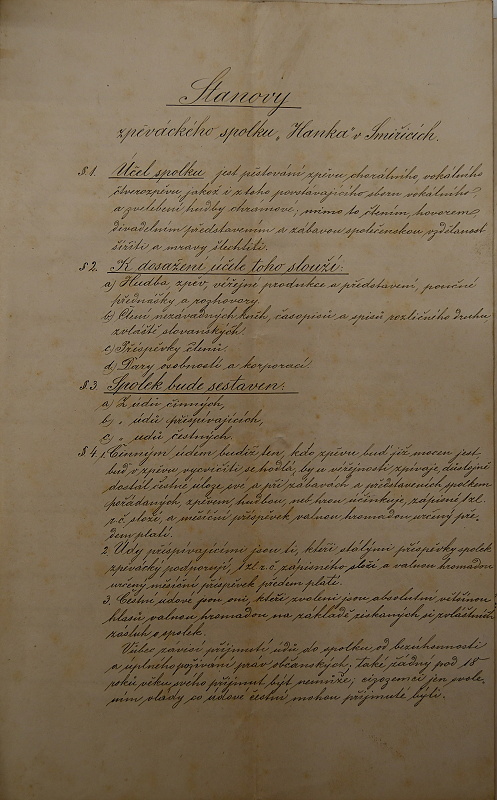 Stanovy
zpěváckého spolku „Hanka" v Smiřicích.
§ 1. Účel spolku jest pěstování zpěvu chorálního, vokálního
čtverozpěvu jakož i z toho povstávajícího sboru vokálního
a zvelebení hudby chrámové; mimo to čtením, hovorem
divadelním představením a zábavou společenskou vzdělanost
šířiti a mravy šlechtiti.
§ 2. K dosažení účele toho slouží:
a) Hudba, zpěv, veřejné produkce a představení, poučné
přednášky a rozhovory.
b) Čtení nezávadných knih, časopisů a spisů rozličného druhu
zvláště slovanských.
c) Příspěvky členů.
d) Dary osobností a korporací.
§ 3 Spolek bude sestaven:
a) Z údů činných,
b) „ údů přispívajících,
c) „ údů čestných.
§ 4. 1. Činným údem budiž ten, kdo zpěvu buď již mocen jest,
buď v zpěvu vycvičiti se hodlá, by u veřejnosti zpívaje, důstojně
dostál čestné úloze své a při zábavách a představeních spolkem
pořádaných, zpěvem, hudbou, neb hrou účinkuje, zápisné 1 zl.
r. č. složí, a měsíční příspěvek valnou hromadou určený pře-
dem platí.
2. Údy přispívajícími jsou ti, kteří stálými příspěvky spolek
zpěvácký podporují, 1 zl. r. č. zápisného složí a valnou hromadou
určený měsíční příspěvek předem platí.
3. Čestní údové jsou oni, kteří zvoleni jsou absolutní většinou
hlasů valnou hromadou na základě získaných si zvláštních
zásluh o spolek.
Vůbec závisí přijmutí údů do spolku od bezúhonnosti
a úplného požívání práv občanských, také žádný pod 18
roků věku svého přijmut býti nemůže; cizozemci jen svole-
ním vlády co údové čestní mohou přijmuti býti.